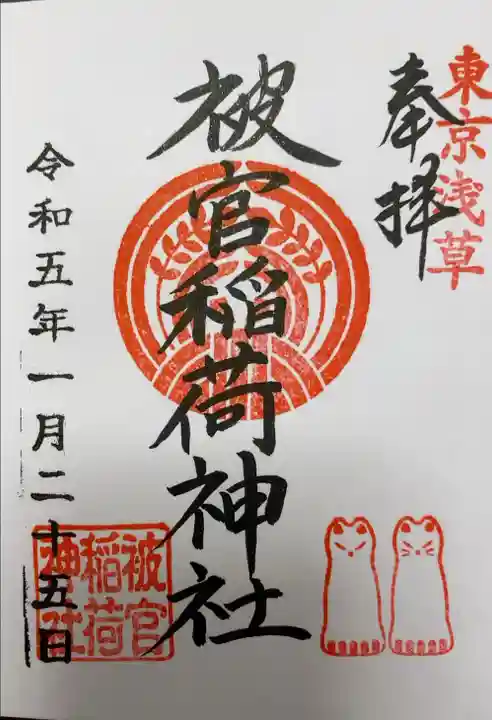 東京浅草
奉拝
被官稲荷神社
令和五年一月二十五日
被官
稲荷
神社